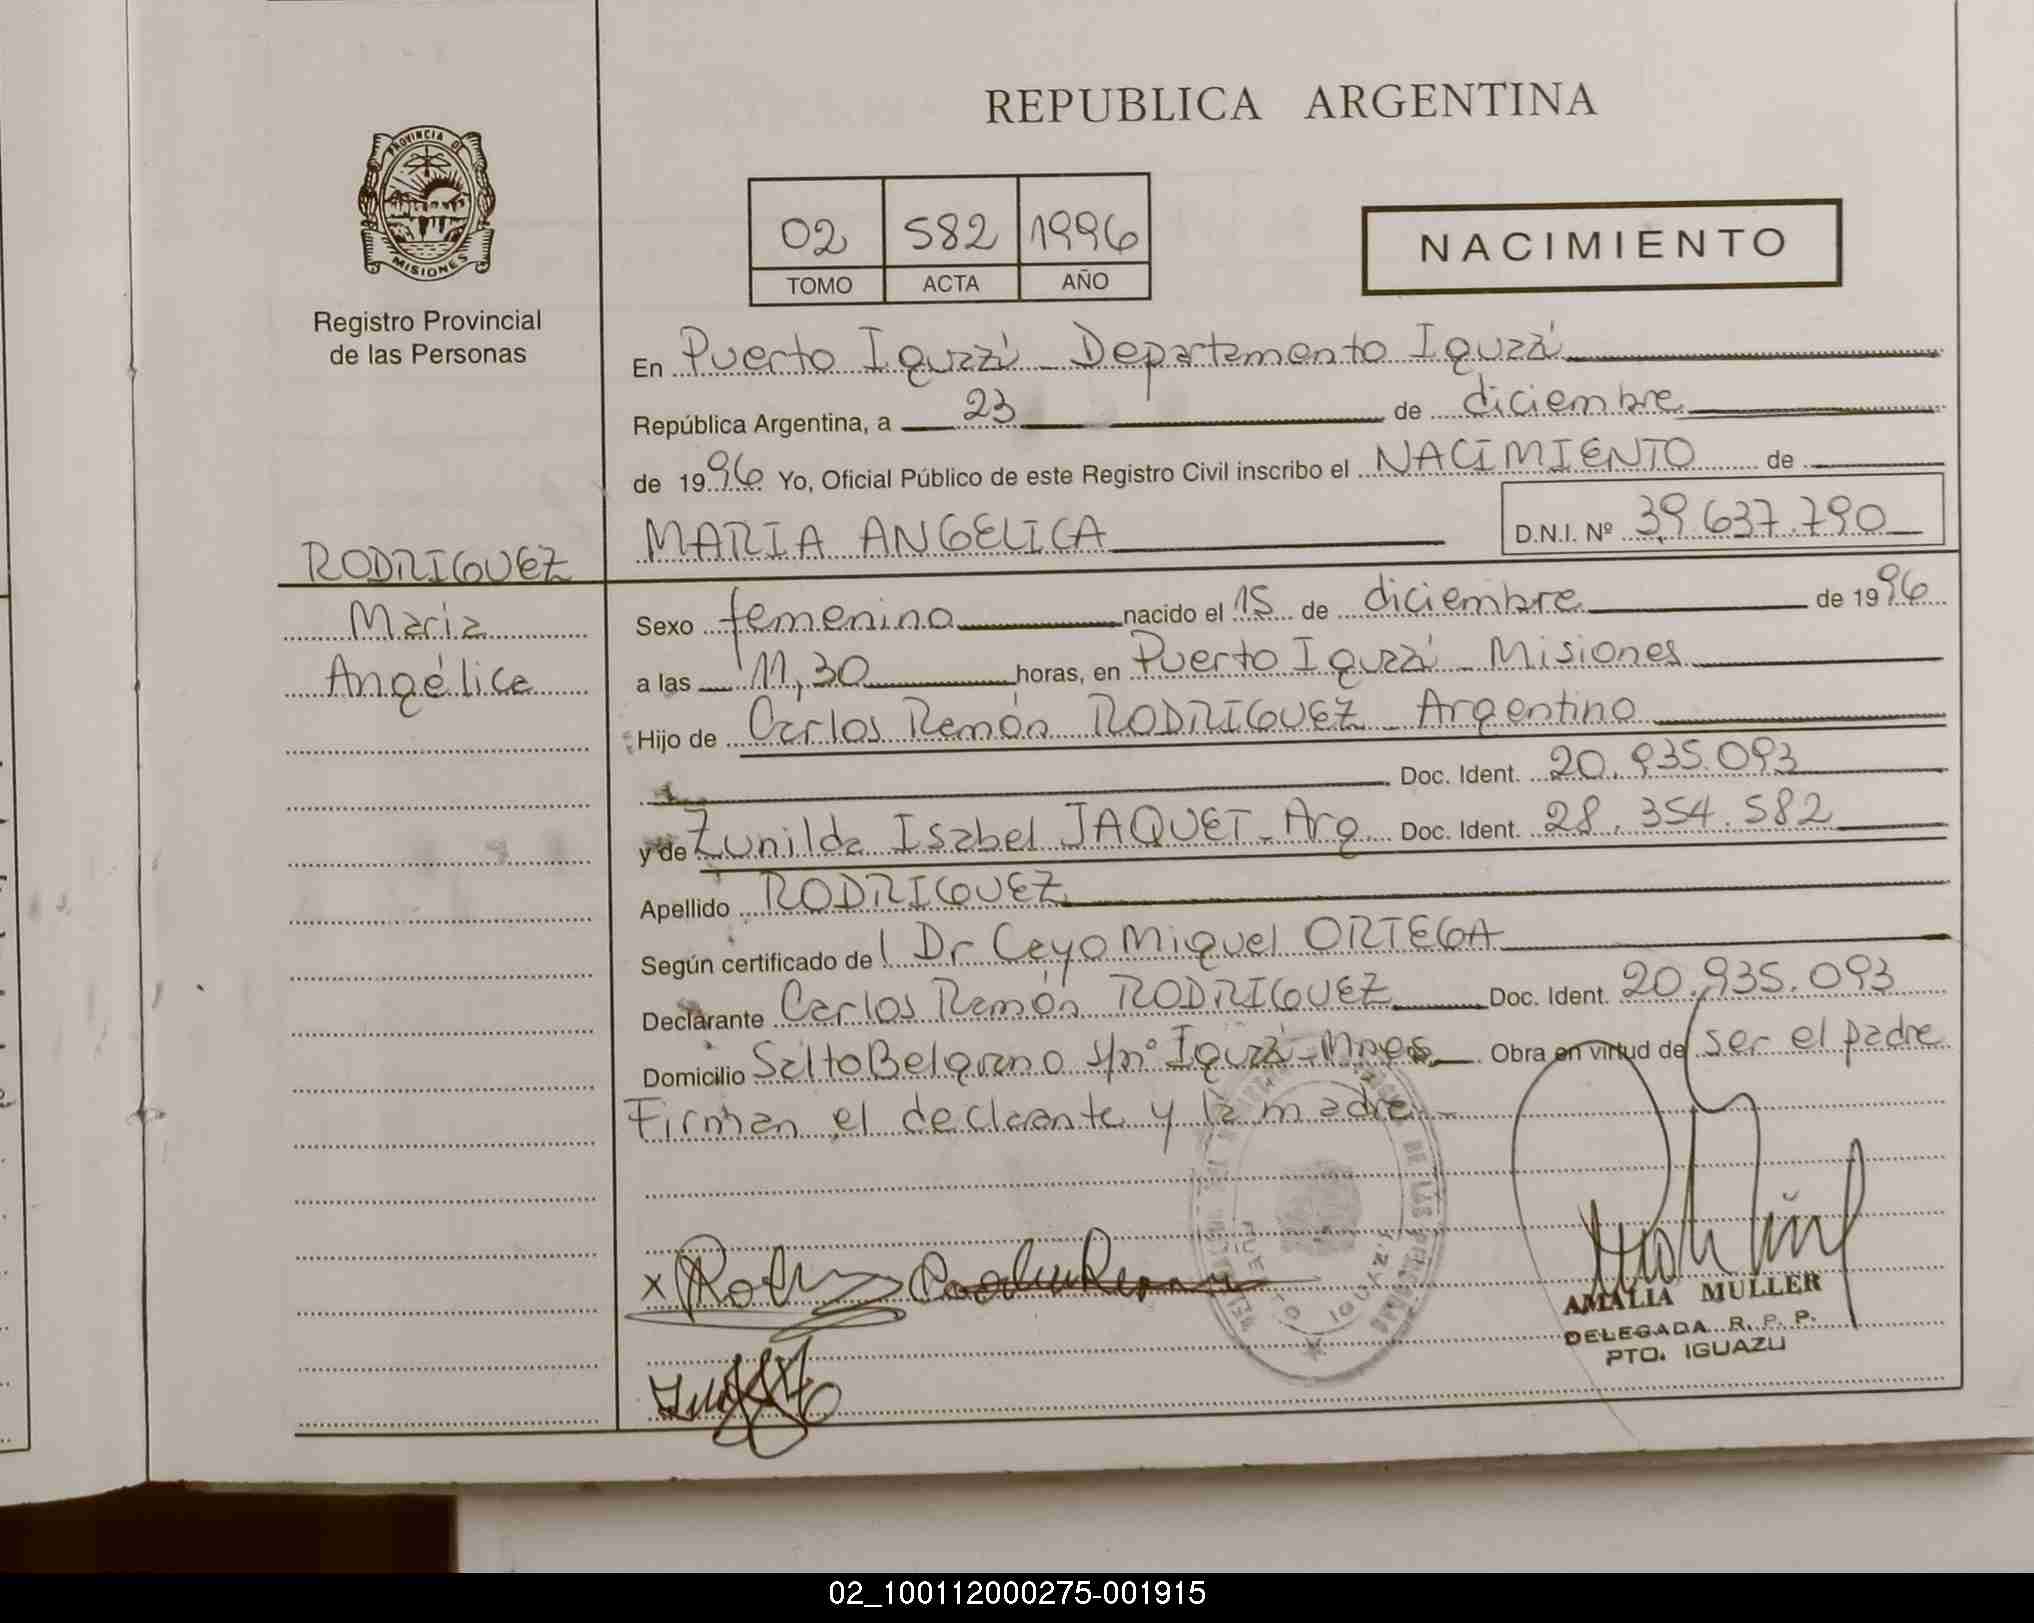 REPUBLICA ARGENTINA
PROVINCIA DE
MISIONES
Registro Provincial
de las Personas
02 582 1996
TOMO ACTA AÑO
NACIMIENTO
En Puerto Iguazú - Departamento Iguazú
República Argentina, a 23 de diciembre
de 1996 Yo, Oficial Público de este Registro Civil inscribo el NACIMIENTO de
MARIA ANGELICA D.N.I. Nº 39.637.790
RODRIGUEZ
María
Angélica
Sexo femenino nacido el 15 de diciembre de 1996
a las 11,30 horas, en Puerto Iguazú - Misiones
Hijo de Carlos Ramón RODRIGUEZ - Argentino
Doc. Ident. 20.935.093
y de Zunilda Isabel JAQUET - Arg Doc. Ident. 28.354.582
Apellido RODRIGUEZ
Según certificado del Dr Cayo Miguel ORTEGA
Declarante Carlos Ramón RODRIGUEZ Doc. Ident. 20.935.093
Domicilio Salto Belgrano s/nº Iguazú - Mnes Obra en virtud de ser el padre
Firman el declarante y la madre
AMALIA MULLER
DELEGADA R. P. P.
PTO. IGUAZU
02_100112000275-001915